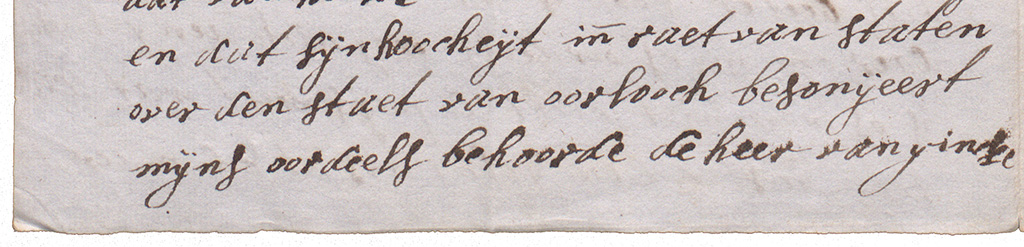 en dat sijn hoocheijt in raet van staten
over den staet van oorlooch besonijeert
mijns oordeels behoorde de heer van